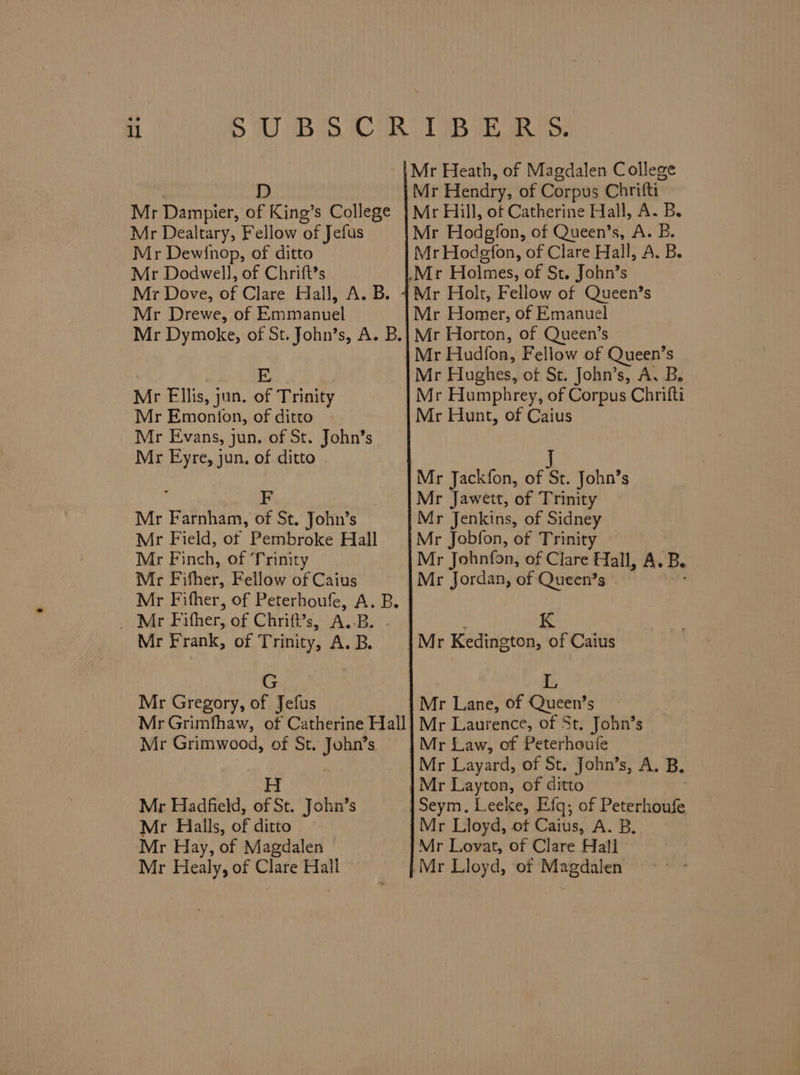 ii SUBSCRIBERS.
D
Mr Dampier, of King's College
Mr Dealtary, Fellow of Jeſus
Mr Dewſnop, of ditto
Mr Dodwell, of Chriſt's
Mr Dove, of Clare Hall, A. B.
Mr Drewe, of Emmanuel
Mr Dymoke, of St. John's, A. B.
E
Mr Ellis, jun. of Trinity
Mr Emonſon, of ditto
Mr Evans, jun. of St. John's
Mr Eyre, jun. of ditto
F
Mr Farnham, of St. John's
Mr Field, of Pembroke Hall
Mr Finch, of Trinity
Mr Fiſher, Fellow of Caius
Mr Fiſher, of Peterhouſe, A. B.
Mr Fiſher, of Chriſt's, A. B.
Mr Frank, of Trinity, A. B.
G
Mr Gregory, of Jeſus
Mr Grimſhaw, of Catherine Hall
Mr Grimwood, of St. John's
H
Mr Hadfield, of St. John's
Mr Halls, of ditto
Mr Hay, of Magdalen
Mr Healy, of Clare Hall
Mr Heath, of Magdalen College
Mr Hendry, of Corpus Chriſti
Mr Hill, of Catherine Hall, A. B.
Mr Hodgſon, of Queen's, A. B.
Mr Hodgſon, of Clare Hall, A. B.
Mr Holmes, of St. John's
Mr Holt, Fellow of Queen's
Mr Homer, of Emanuel
Mr Horton, of Queen's
Mr Hudſon, Fellow of Queen's
Mr Hughes, of St. John's, A. B.
Mr Humphrey, of Corpus Chriſti
Mr Hunt, of Caius
J
Mr Jackſon, of St. John's
Mr Jawett, of Trinity
Mr Jenkins, of Sidney
Mr Jobſon, of Trinity
Mr Johnſon, of Clare Hall, A. B.
Mr Jordan, of Queen's
K
Mr Kedington, of Caius
L
Mr Lane, of Queen's
Mr Laurence, of St. John's
Mr Law, of Peterhouſe
Mr Layard, of St. John's, A. B.
Mr Layton, of ditto
Seym. Leeke, Eſq; of Peterhouſe
Mr Lloyd, of Caius, A. B.
Mr Lovat, of Clare Hall
Mr Lloyd, of Magdalen